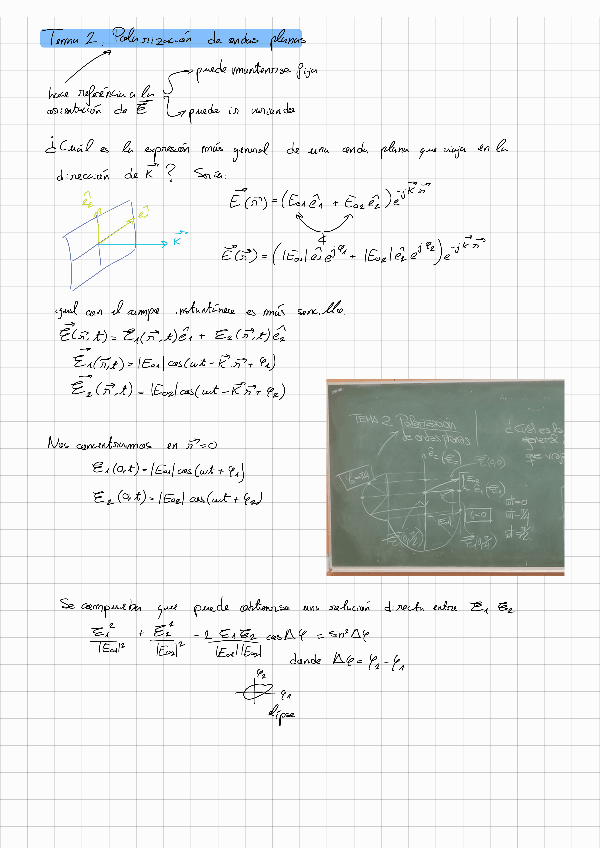 Tema 2. Polarización de ondas planas
puede mantenerse fija
hace referencia a la
orientación de E⃗
puede ir variando
¿Cuál es la expresión más general de una onda plana que viaja en la
dirección de K⃗? Sería:
ê₂
K⃗
E⃗(r⃗) = (E₀₁ ê₁ + E₀₂ ê₂) e^(-jK⃗ r⃗)
E⃗(r⃗) = (|E₀₁| ê₁ e^(jφ₁) + |E₀₂| ê₂ e^(jφ₂)) e^(-jK⃗ r⃗)
igual con el campo instantáneo es más sencillo
E⃗(r⃗,t) = E₁(r⃗,t) ê₁ + E₂(r⃗,t) ê₂
E⃗₁(r⃗,t) = |E₀₁| cos(ωt - K⃗ r⃗ + φ₁)
E⃗₂(r⃗,t) = |E₀₂| cos(ωt - K⃗ r⃗ + φ₂)
TEMA 2. Polarización
de ondas planas
Nos concentramos en r⃗=0
E₁(0,t) = |E₀₁| cos(ωt + φ₁)
E₂(0,t) = |E₀₂| cos(ωt + φ₂)
Se comprueba que puede obtenerse una relación directa entre E₁ E₂
E₁²/|E₀₁|² + E₂²/|E₀₂|² - 2 E₁E₂/|E₀₁||E₀₂| cosΔφ = sin²Δφ
donde Δφ = φ₂ - φ₁
φ₂
φ₁
elipse